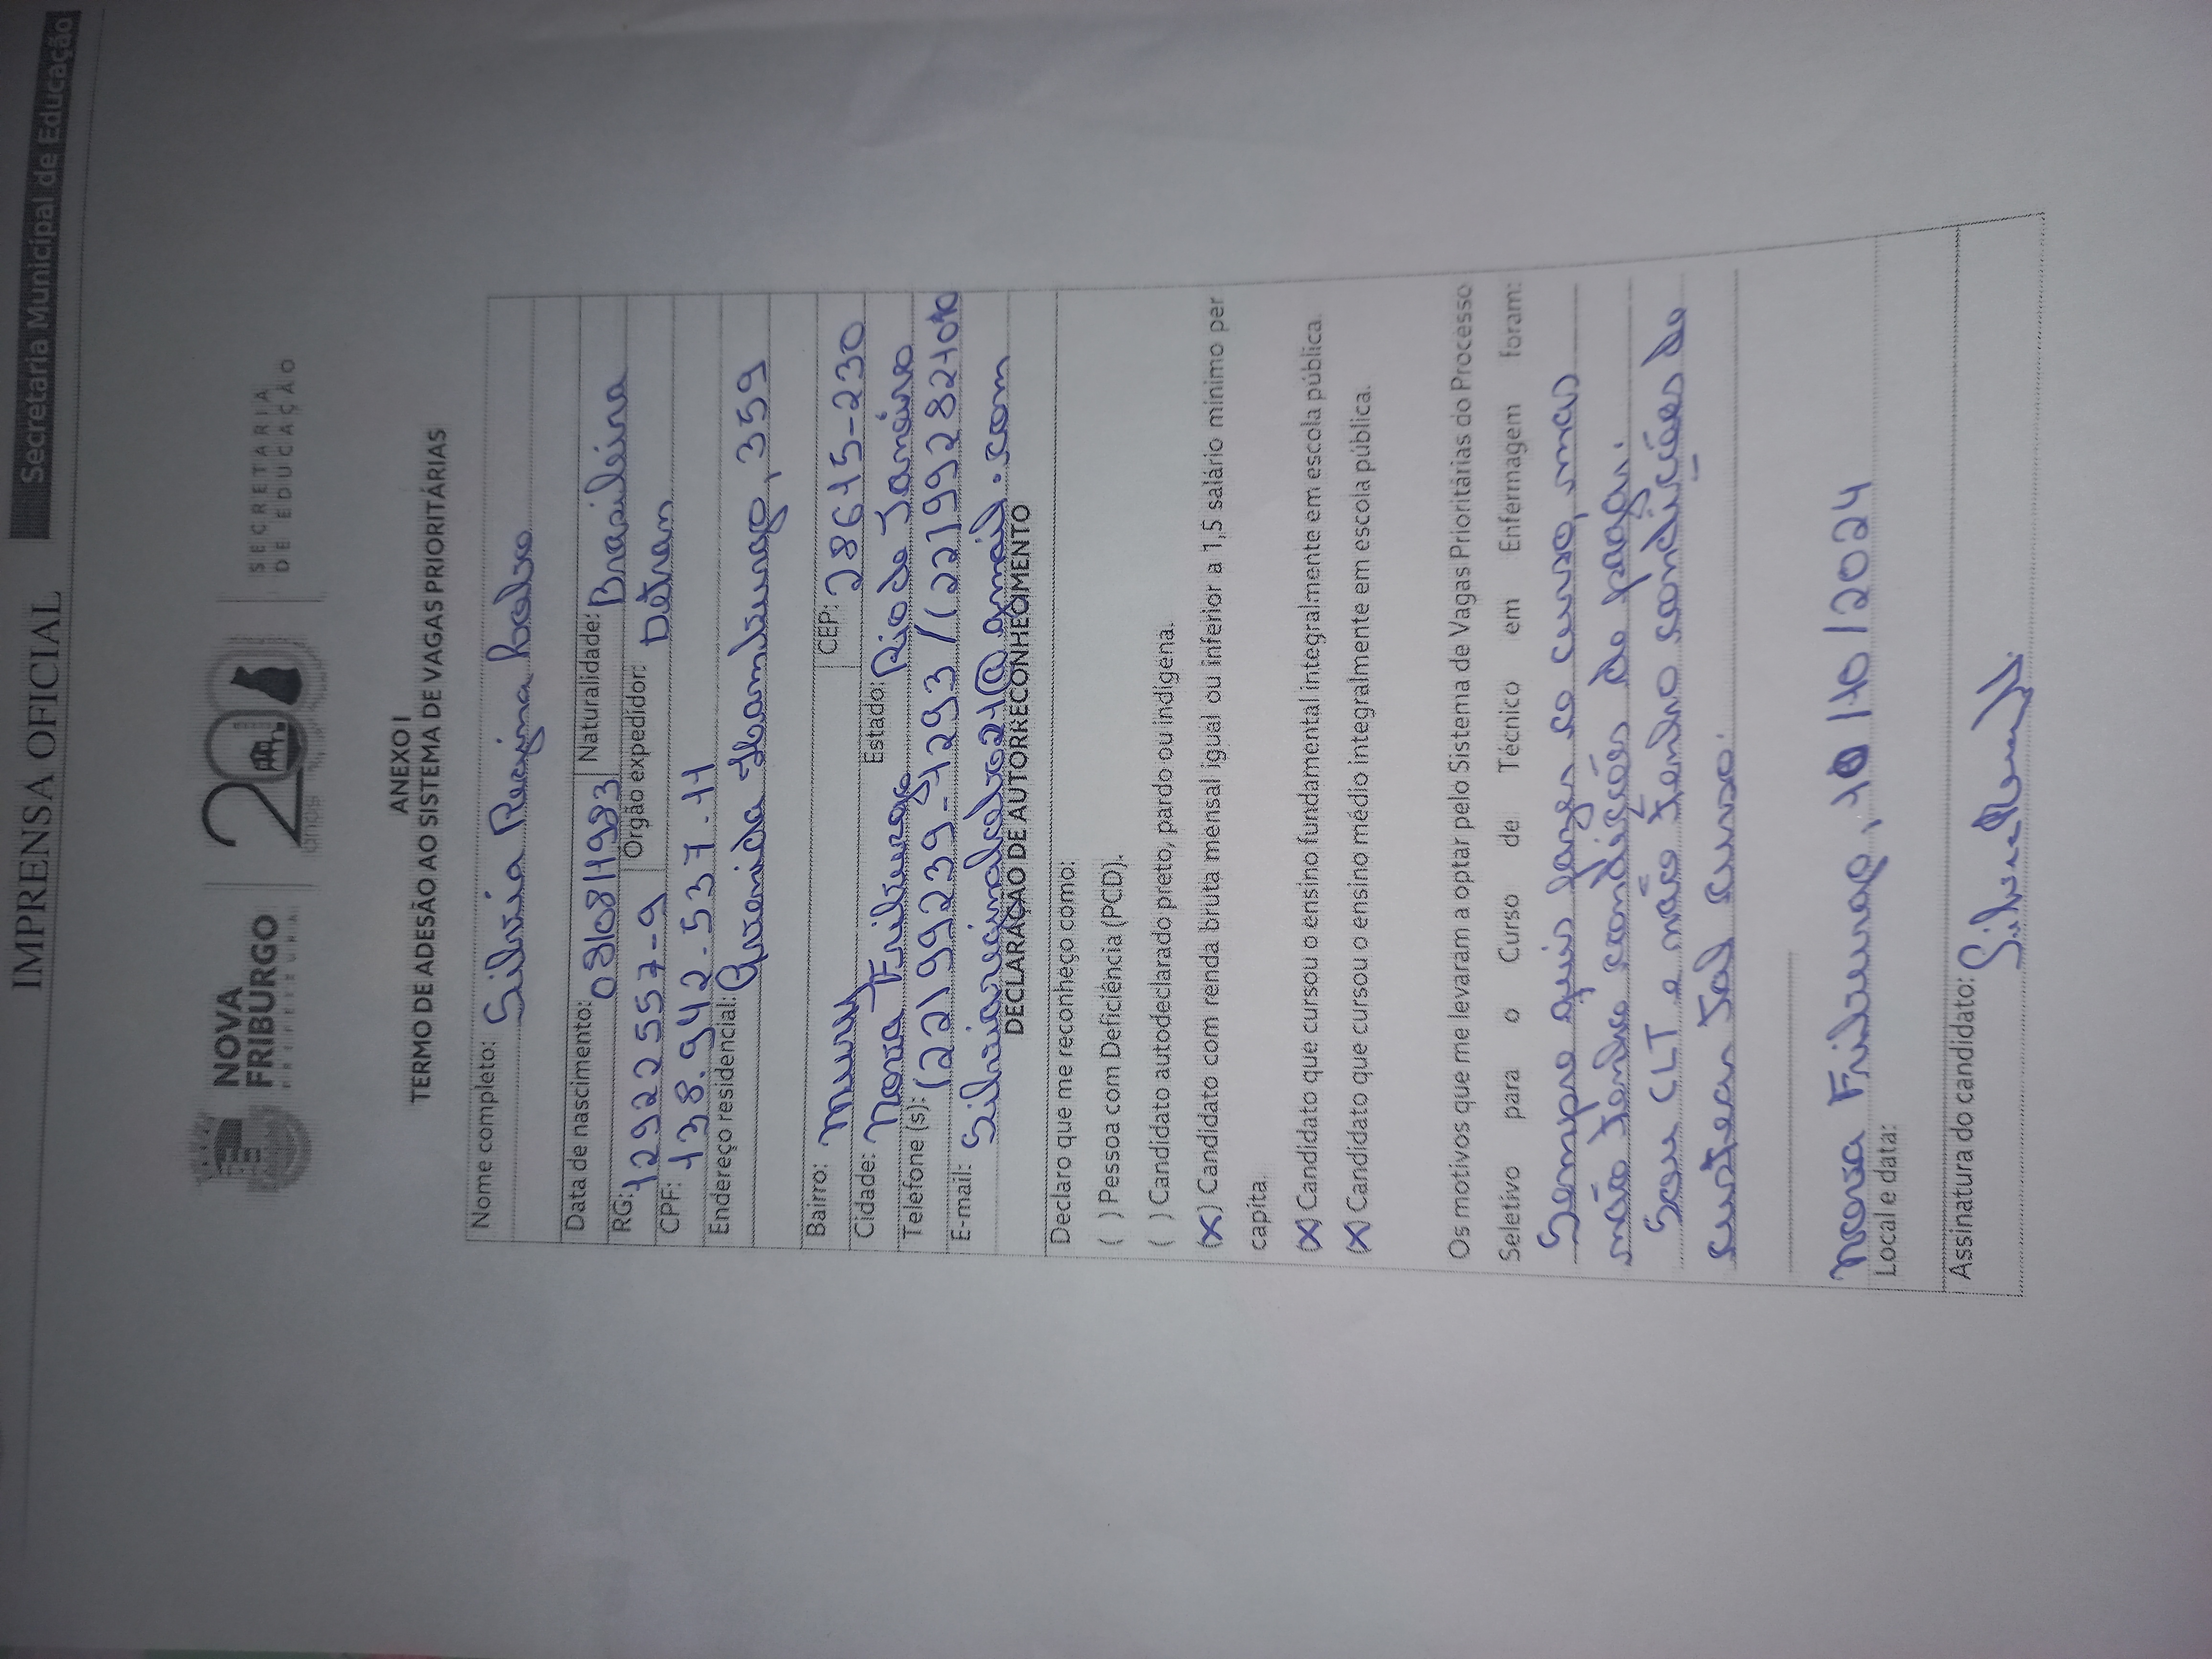 IMPRENSA OFICIAL
Secretaria Municipal de Educação
NOVA
FRIBURGO
PREFEITURA
200
anos
SECRETARIA
DE EDUCAÇÃO
ANEXO I
TERMO DE ADESÃO AO SISTEMA DE VAGAS PRIORITÁRIAS
Nome completo: Silvia Regina
Data de nascimento: 08/08/1983 Naturalidade: Brasileira
RG: 12922557-9 Órgão expedidor: Detran
CPF: 138.942.537.11
Endereço residencial: Avenida Hamburgo, 359
Bairro: Mury CEP: 28615-230
Cidade: Nova Friburgo Estado: Rio de Janeiro
Telefone (s): (22) 99239-1293 /
E-mail:
DECLARAÇÃO DE AUTORRECONHECIMENTO
Declaro que me reconheço como:
( ) Pessoa com Deficiência (PCD).
( ) Candidato autodeclarado preto, pardo ou indígena.
(X) Candidato com renda bruta mensal igual ou inferior a 1,5 salário mínimo per
capita.
(X) Candidato que cursou o ensino fundamental integralmente em escola pública.
(X) Candidato que cursou o ensino médio integralmente em escola pública.
Os motivos que me levaram a optar pelo Sistema de Vagas Prioritárias do Processo
Seletivo para o Curso de Técnico em Enfermagem foram:
Sempre quis fazer o curso, mas
não tenho condições de pagar.
Sou CLT e não tenho condições de
custear tal curso.
Nova Friburgo, 10/10/2024
Local e data:
Assinatura do candidato: